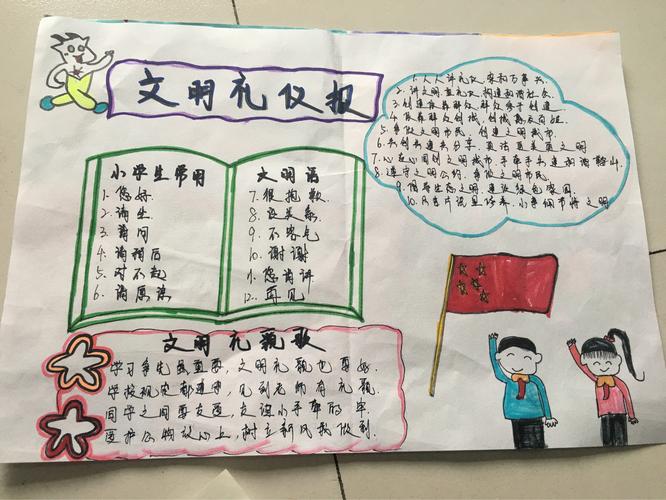 文明礼仪报
小学生常用
1. 您好
2. 请坐
3. 请问
4. 请稍后
5. 对不起
6. 请原谅
文明语
7. 很抱歉
8. 没关系
9. 不客气
10. 谢谢
11. 您请讲
12. 再见
1. 人人讲礼仪 家和万事兴.
2. 讲文明重礼仪, 构建和谐社会
3. 创建依靠群众, 群众参于创建.
4. 依靠群众创城, 创城惠及百姓
5. 争做文明市民, 创建文明城市.
6. 共创共建共分享, 更洁更美更文明
7. 心连心同创文明城市, 手牵手共建和谐
8. 遵守文明公约, 争做文明市民.
9. 倡导生态文明, 建设绿色家园.
10. 只言片语显修养, 小事细节将文明
文明礼貌歌
学习争先最重要, 文明礼貌也要好.
学校规定都遵守, 见到老师有礼貌.
同学之间要友爱, 友谊小手牵的牢.
爱护公物放心上, 树立新风我做到.